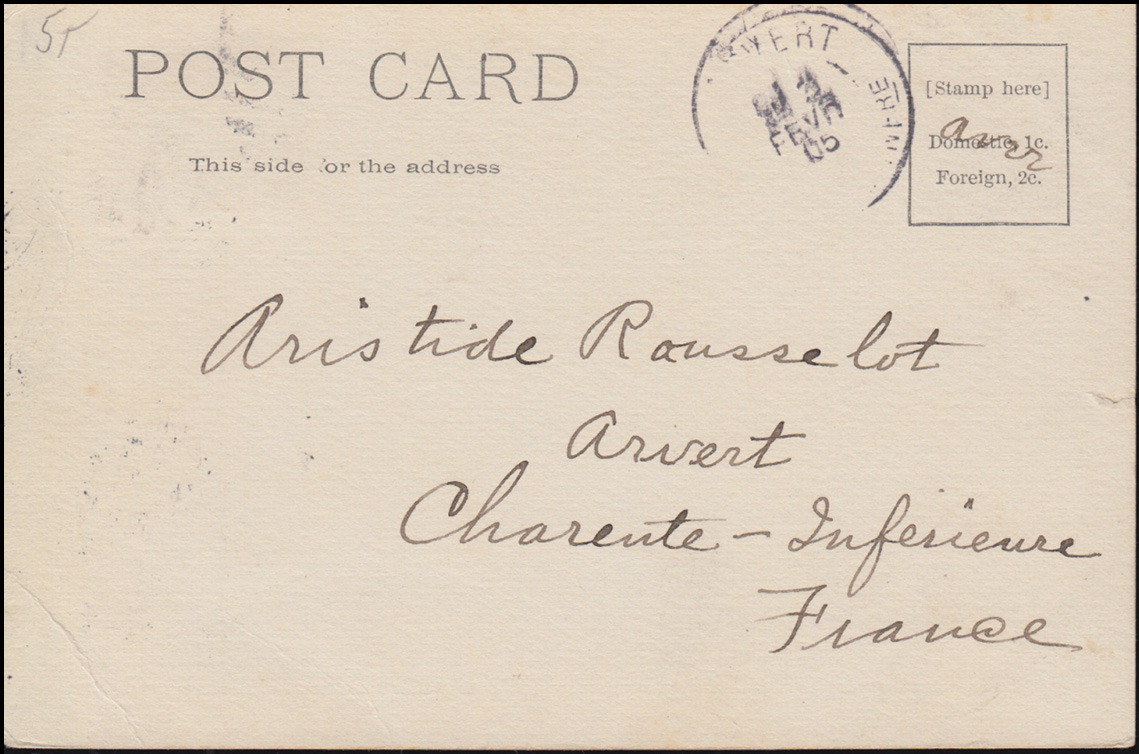 5
POST CARD
This side or the address
VERT
FEVR
05
[Stamp here]
Domestic, 1c.
Foreign, 2c.
Aristide Rousselot
Arvert
Charente - Inférieure
France